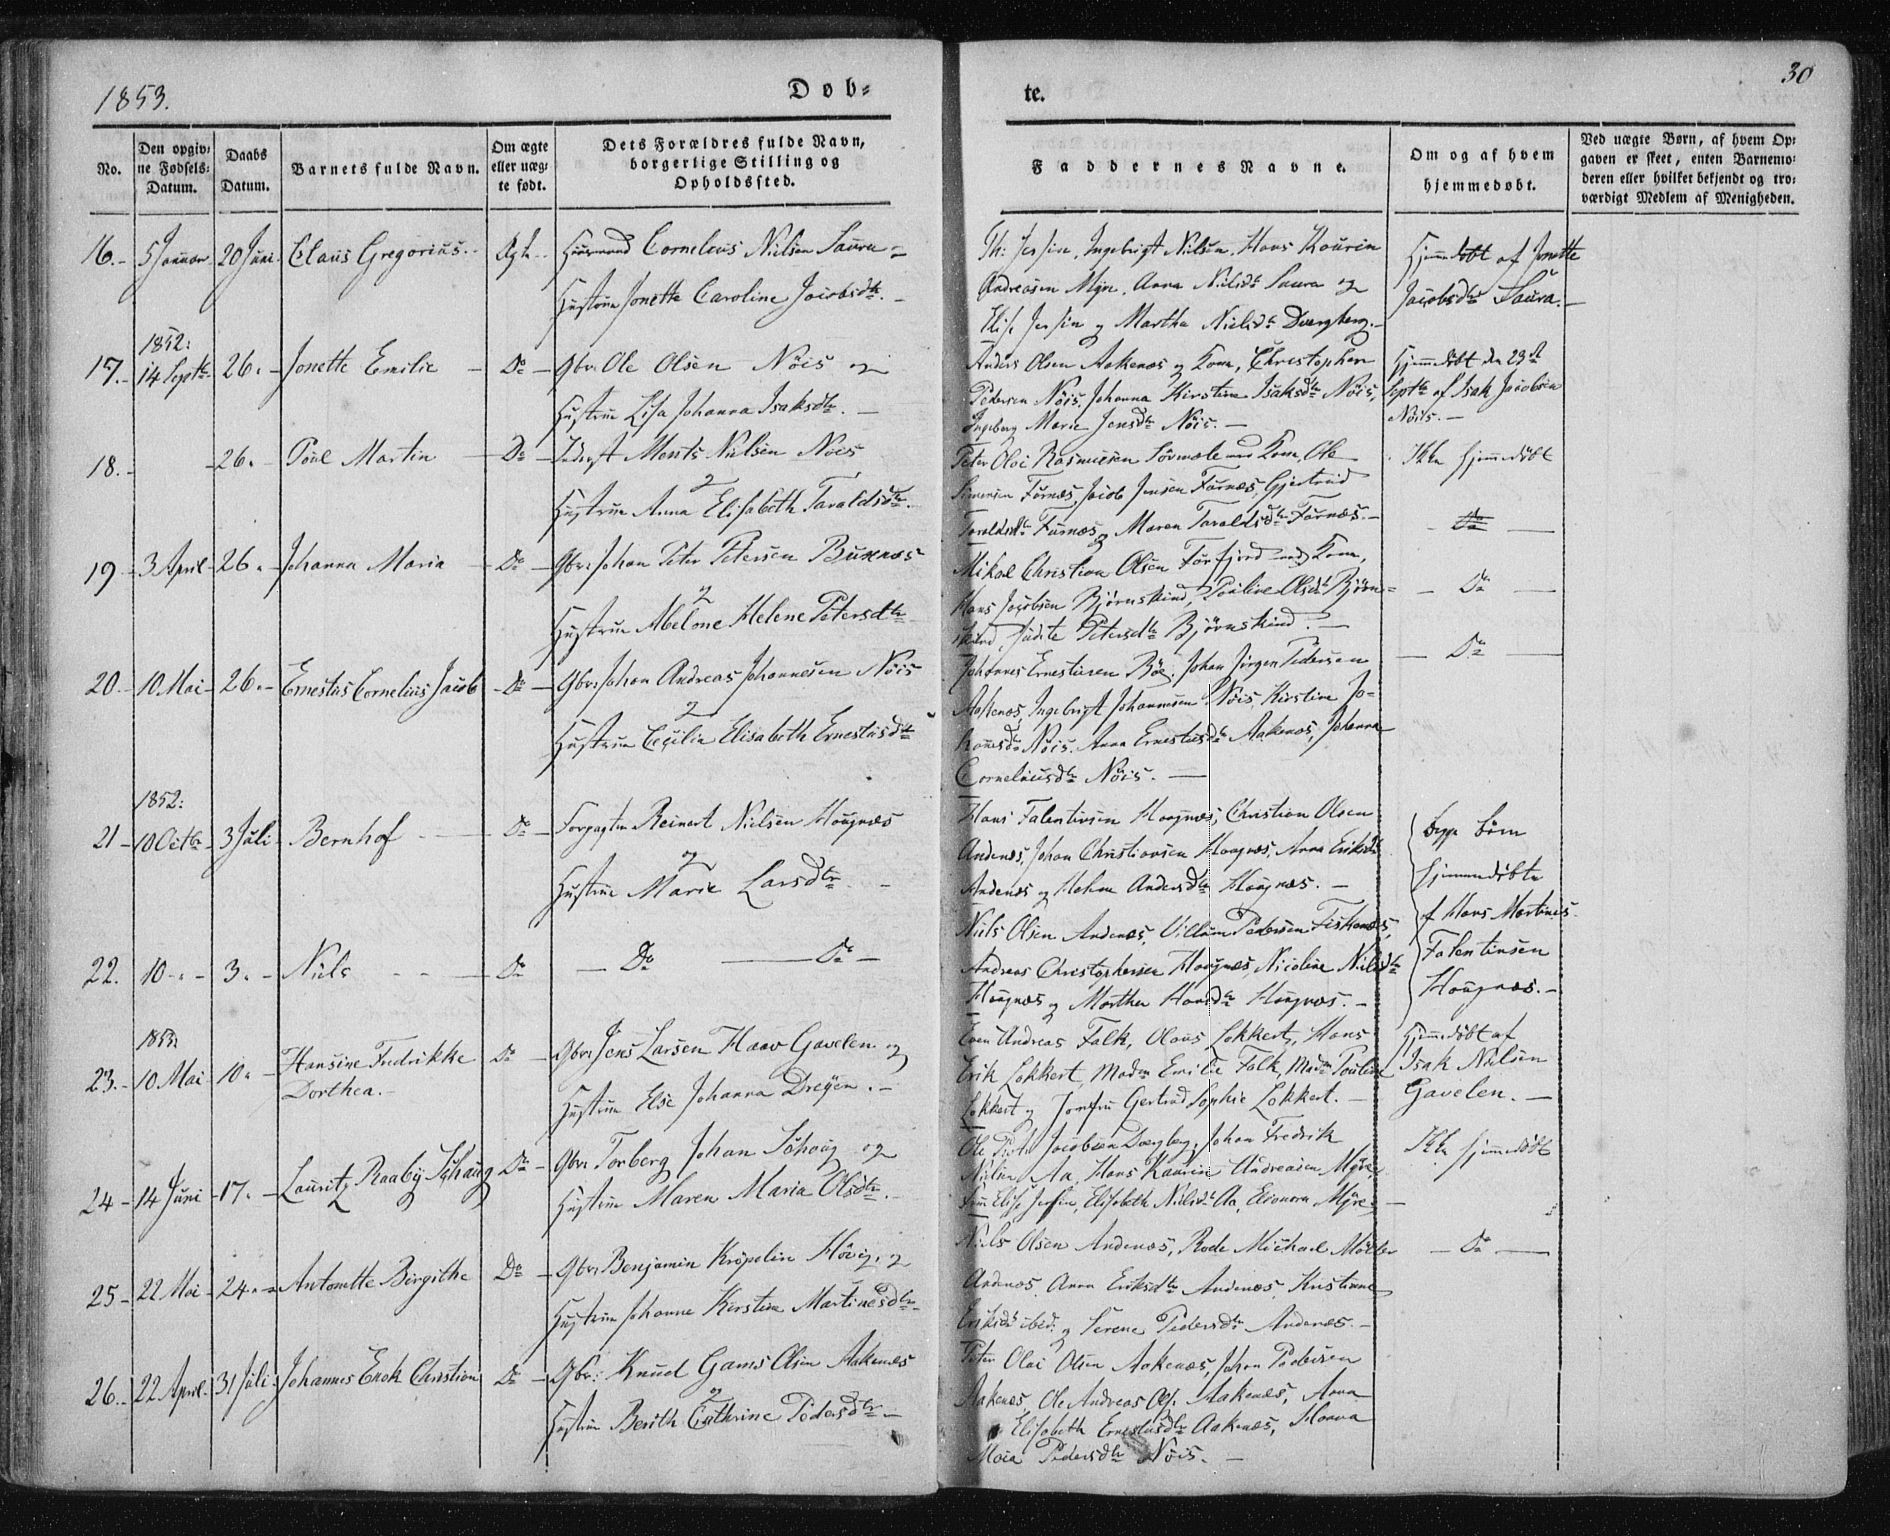 1853.
Døb-
te.
30
No.
Den opgiv-
ne Fødsels-
Datum.
Daabs
Datum.
Barnets fulde Navn.
Om ægte
eller uæg-
te født.
Dets Forældres fulde Navn,
borgerlige Stilling og
Opholdssted.
Faddernes Navne.
Om og af hvem
hjemmedøbt.
Ved uægte Børn, af hvem Op-
gaven er skeet, enten Barnemo-
deren eller hvilket bekjendt og tro-
værdigt Medlem af Menigheden.
16. 5 Januar 20 Juni Claus Gregorius. Ægte Huusmand Cornelius Nielsen Saura
Hustrue Jonette Caroline Jacobsdtr.
Ingebrigt Nielsen, Hans Kaurin
Andreasen Myre, Anna Nielsdtr Saura og
Elise Jessen og Martha Nielsdtr Dverberg.
Hjemmedøbt af Jonette
Jacobsdtr Saura.
1852:
17. 14 Septbr 26. Jonette Emilie Do Gbr. Ole Olsen Nöis og
Hustrue Lisa Johanna Isaksdtr.
Anders Olsen Aakenæs og Kone, Christopher
Pedersen Nöis, Johanna Kirstine Isaksdtr Nöis,
Ingeborg Marie Jensdtr Nöis.
Hjemmedøbt den 23de
Septbr af Isak Jacobsen
Nöis.
18. 26. Poul Martin Do Inderst Ments Nielsen Nöis
og
Hustrue Anna Elisabeth Taraldsdtr.
Peter Oloi Rasmussen med Kone, Ole
Simonsen Fornæs, Jacob Jensen Fornæs, Gjertrud
Taraldsdtr Fornæs og Maren Taraldsdtr Fornæs.
Ikke hjemmedöbt
Do
19 3 April 26. Johanna Maria Do Gbr: Johan Peter Petersen Buxnæs
og
Hustrue Abelone Helene Petersdtr
Mikal Christian Olsen Forfjord med Kone,
Hans Jacobsen Bjørnskind, Pauline Olsdtr Bjørn-
skind, Judite Petersdtr Bjørnskind.
Do
20 10 Mai 26. Ernestus Cornelius Jacob Do Gbr: Johan Andreas Johannesen Nöis
og
Hustrue Cecilia Elisabeth Ernestusdtr
Johannes Ernestusen Böe, Johan Jörgen Pedersen
Aakenæs, Ingebrigt Johannesen Nöis, Kirstine Jo-
hannesdtr Nöis, Anna Ernestusdtr Aakenæs, Johanna
Corneliusdtr Nöis.
Do
1852:
21 10 Octbr 3 Juli Bernhof Do Forpagter Reinert Nielsen Hougnæs
og
Hustrue Marie Larsdtr.
Hans Falentinsen Hougnæs, Christian Olsen
Andenæs, Johan Christiansen Hougnæs, Anna Eriksdtr
Andenæs og Helene Andersdtr Hougnæs.
begge Børn
hjemmedøbte
af Hans Martinus
Falentinsen
Hougnæs.
22. 10 3. Niels Do Do Do
Niels Olsen Andenæs, Villum Pedersen Fiskenæs,
Andreas Christophersen Hougnæs, Nicoline Nielsdtr
Hougnæs og Marthe Hansdtr Hougnæs.
1853:
23. 10 Mai 10. Hansine Fredrikke
Dorthea. Do Gbr: Jens Larsen Haav Gavelen og
Hustrue Else Johanna Dreyer.
Even Andreas Falk, Olaus Lokkert, Hans
Erik Lokkert, Madm Emilie Falk, Madm Pauline
Lokkert og Jomfru Gertrud Sophie Lokkert.
Hjemmedöbt af
Isak Nielsen
Gavelen.
24 14 Juni 17. Lauritz Raaby Schaug Do Gbr: Torberg Johan Schaug og
Hustrue Maren Maria Olsdtr.
Ole Jacobsen Dverberg, Johan Fredrik
Nielsen Aa, Hans Kaurin Andreasen Myre,
Elise Jessen, Elisabeth Nielsdtr Aa, Elionora Myre.
Ikke hjemmedöbt
25 22 Mai 24. Antonette Birgithe Do Gbr: Benjamin Kröpelin Hövig, og
Hustrue Johanne Kirstine Martinesdtr
Niels Olsen Andenæs, Rode Michael Möller
Andenæs, Anna Eriksdtr Andenæs, Kristianne
Eriksdtr ibid. og Serene Pedersdtr Andenæs.
Do
26. 22 April 31 Juli Johannes Enok Christian Do Gbr: Knud Gams Olsen Aakenæs
og
Hustrue Berith Cathrine Pedersdtr
Peter Oloi Olsen Aakenæs, Johan Pedersen
Aakenæs, Ole Andreas Ols. Aakenæs, Anna
Elisabeth Ernestusdtr Aakenæs,
Pedersdtr Nöis.